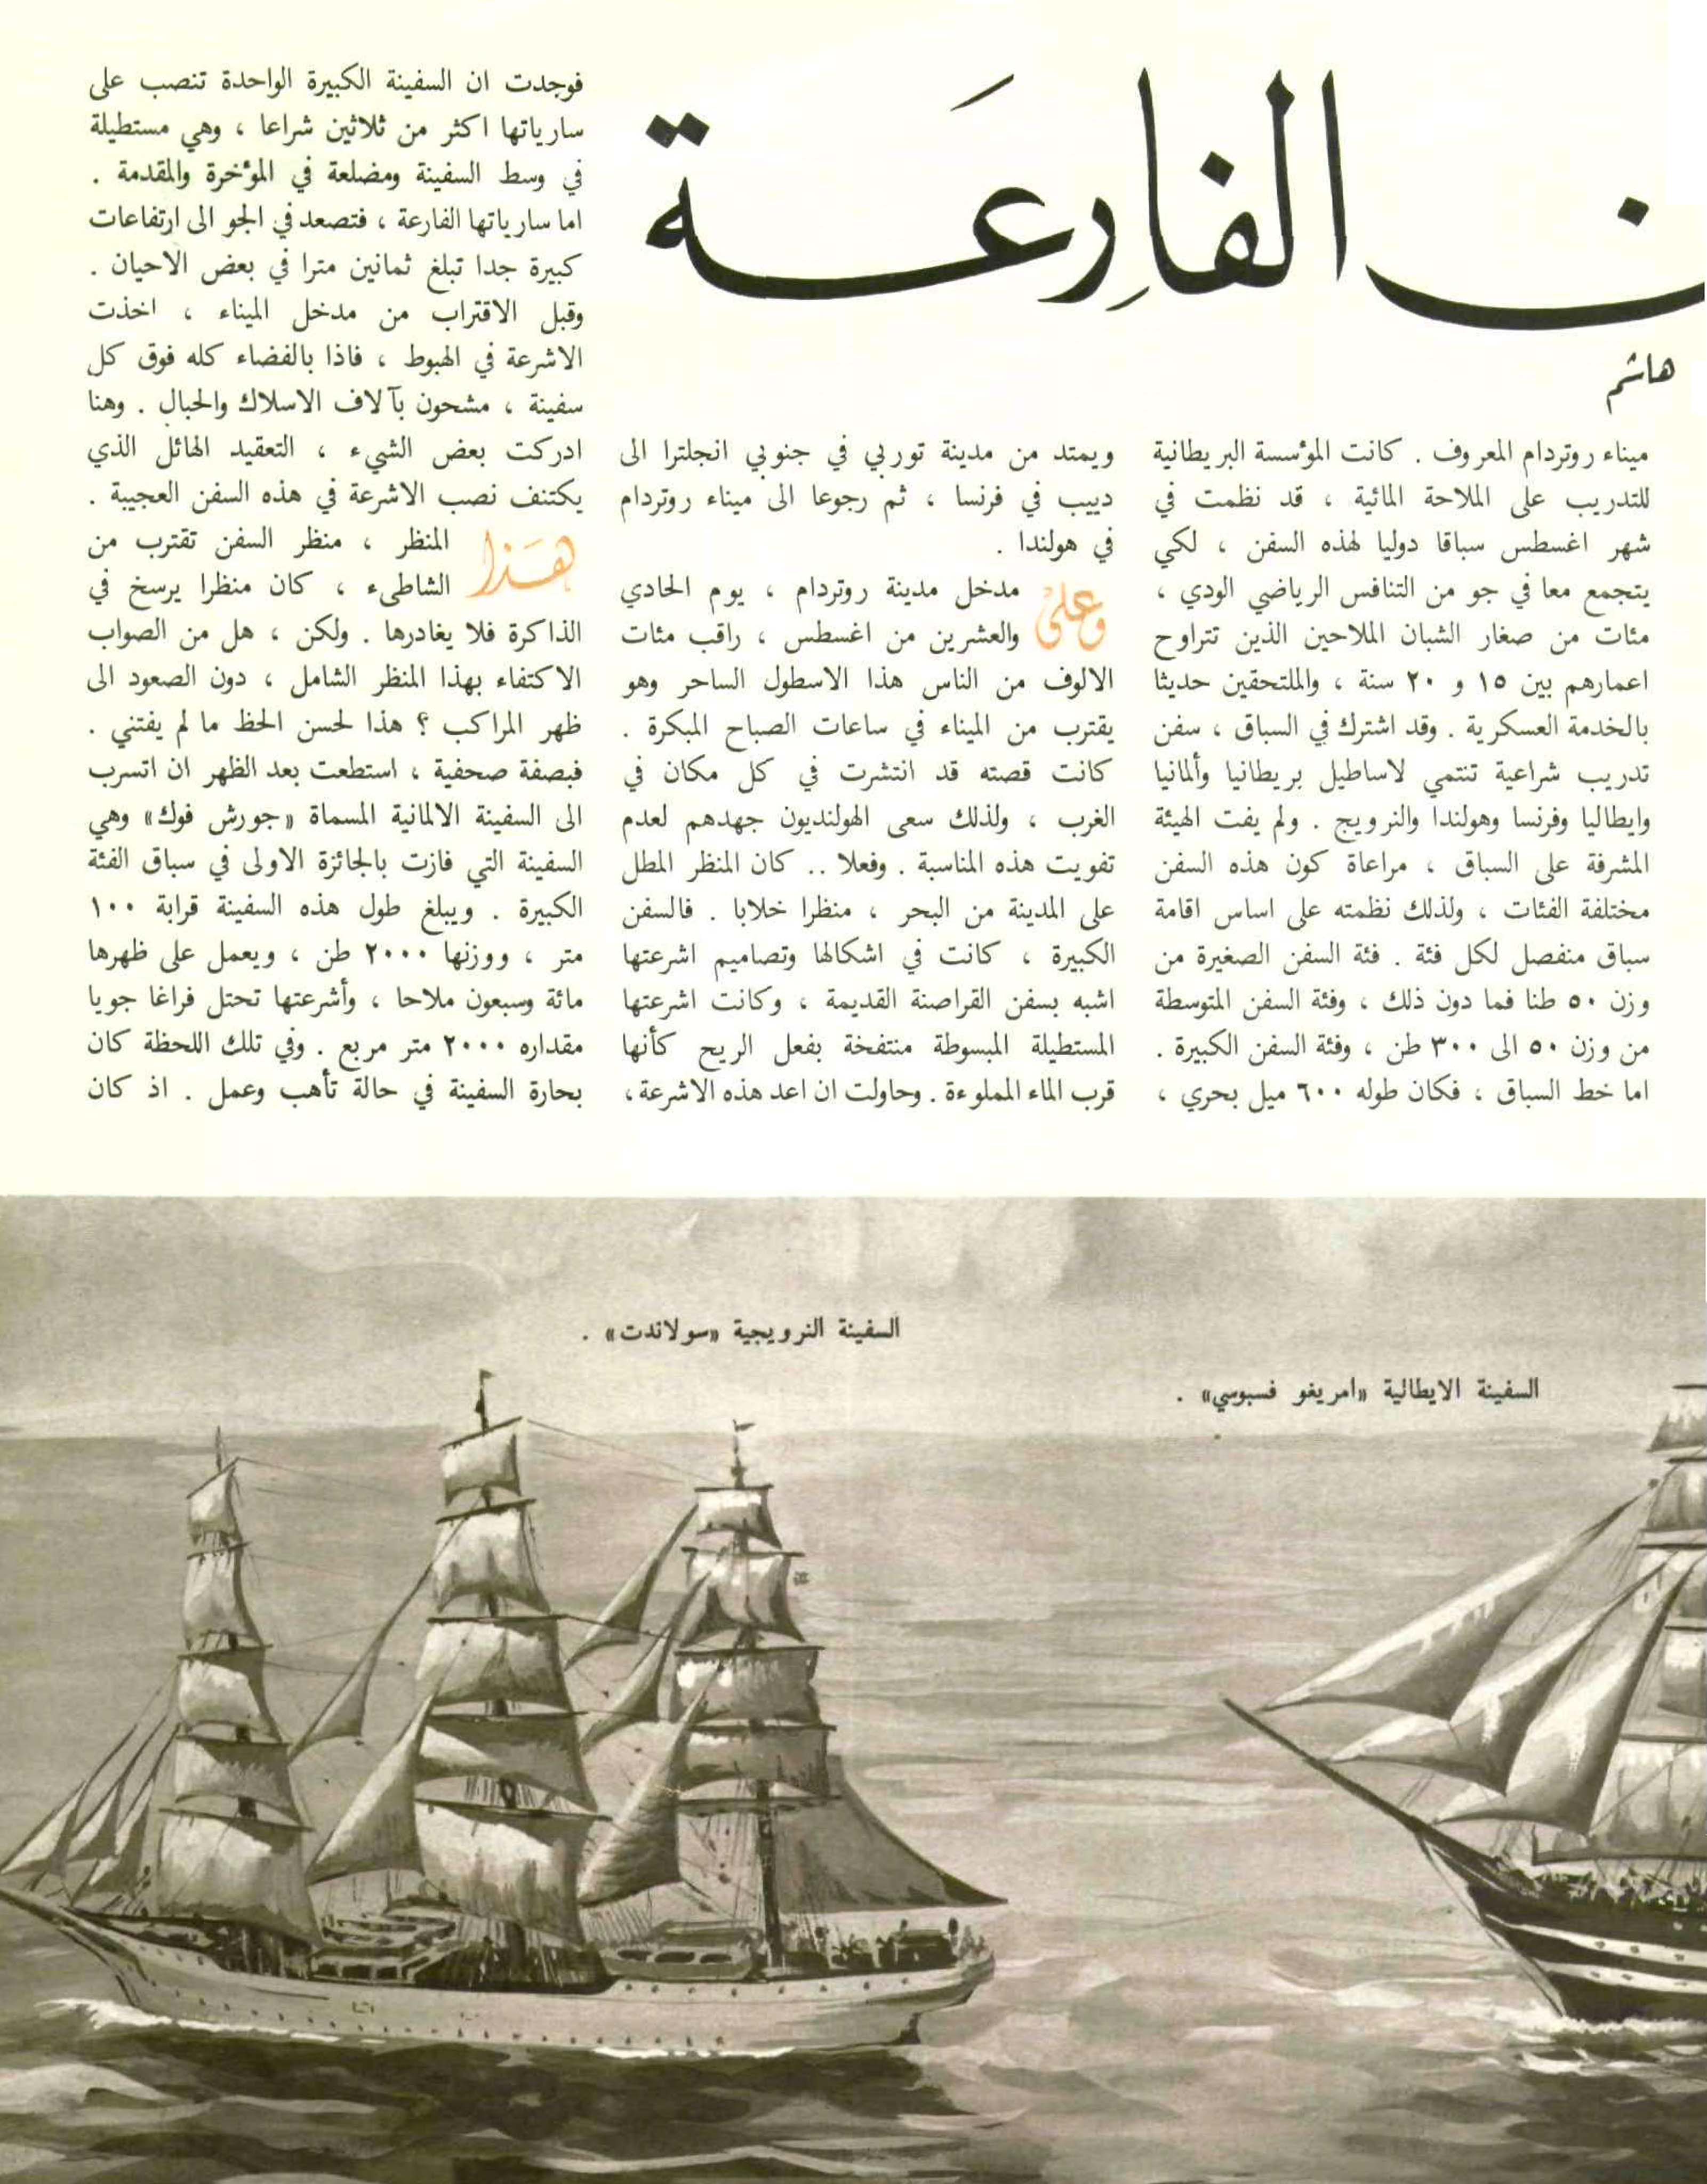 ن الفارِعَة
هاشم
ميناء روتردام المعروف . كانت المؤسسة البريطانية
للتدريب على الملاحة المائية ، قد نظمت في
شهر اغسطس سباقا دوليا لهذه السفن ، لكي
يتجمع معا في جو من التنافس الرياضي الودي ،
مئات من صغار الشبان الملاحين الذين تتراوح
اعمارهم بين ١٥ و ٢٠ سنة ، والملتحقين حديثا
بالخدمة العسكرية . وقد اشترك في السباق ، سفن
تدريب شراعية تنتمي لاساطيل بريطانيا وألمانيا
وايطاليا وفرنسا وهولندا والنرويج . ولم يفت الهيئة
المشرفة على السباق ، مراعاة كون هذه السفن
مختلفة الفئات ، ولذلك نظمته على اساس اقامة
سباق منفصل لكل فئة . فئة السفن الصغيرة من
وزن ٥٠ طنا فما دون ذلك ، وفئة السفن المتوسطة
من وزن ٥٠ الى ٣٠٠ طن ، وفئة السفن الكبيرة .
اما خط السباق ، فكان طوله ٦٠٠ ميل بحري ،
ويمتد من مدينة توربي في جنوبي انجلترا الى
دييب في فرنسا ، ثم رجوعا الى ميناء روتردام
في هولندا .
وعلى مدخل مدينة روتردام ، يوم الحادي
والعشرين من اغسطس ، راقب مئات
الالوف من الناس هذا الاسطول الساحر وهو
يقترب من الميناء في ساعات الصباح المبكرة .
كانت قصته قد انتشرت في كل مكان في
الغرب ، ولذلك سعى الهولنديون جهدهم لعدم
تفويت هذه المناسبة . وفعلا .. كان المنظر المطل
على المدينة من البحر ، منظرا خلابا . فالسفن
الكبيرة ، كانت في اشكالها وتصاميم اشرعتها
اشبه بسفن القراصنة القديمة ، وكانت اشرعتها
المستطيلة المبسوطة منتفخة بفعل الريح كأنها
قرب الماء المملوءة . وحاولت ان اعد هذه الاشرعة ،
فوجدت ان السفينة الكبيرة الواحدة تنصب على
سارياتها اكثر من ثلاثين شراعا ، وهي مستطيلة
في وسط السفينة ومضلعة في المؤخرة والمقدمة .
اما سارياتها الفارعة ، فتصعد في الجو الى ارتفاعات
كبيرة جدا تبلغ ثمانين مترا في بعض الاحيان .
وقبل الاقتراب من مدخل الميناء ، اخذت
الاشرعة في الهبوط ، فاذا بالفضاء كله فوق كل
سفينة ، مشحون بآلاف الاسلاك والحبال . وهنا
ادركت بعض الشيء ، التعقيد الهائل الذي
يكتنف نصب الاشرعة في هذه السفن العجيبة .
هَذا المنظر ، منظر السفن تقترب من
الشاطىء ، كان منظرا يرسخ في
الذاكرة فلا يغادرها . ولكن ، هل من الصواب
الاكتفاء بهذا المنظر الشامل ، دون الصعود الى
ظهر المراكب ؟ هذا لحسن الحظ ما لم يفتني .
فبصفة صحفية ، استطعت بعد الظهر ان اتسرب
الى السفينة الالمانية المسماة «جورش فوك» وهي
السفينة التي فازت بالجائزة الاولى في سباق الفئة
الكبيرة . ويبلغ طول هذه السفينة قرابة ١٠٠
متر ، ووزنها ٢٠٠٠ طن ، ويعمل على ظهرها
مائة وسبعون ملاحا ، وأشرعتها تحتل فراغا جويا
مقداره ٢٠٠٠ متر مربع . وفي تلك اللحظة كان
بحارة السفينة في حالة تأهب وعمل . اذ كان
السفينة النرويجية «سولاندت» .
السفينة الايطالية «امريغو فسبوسي» .